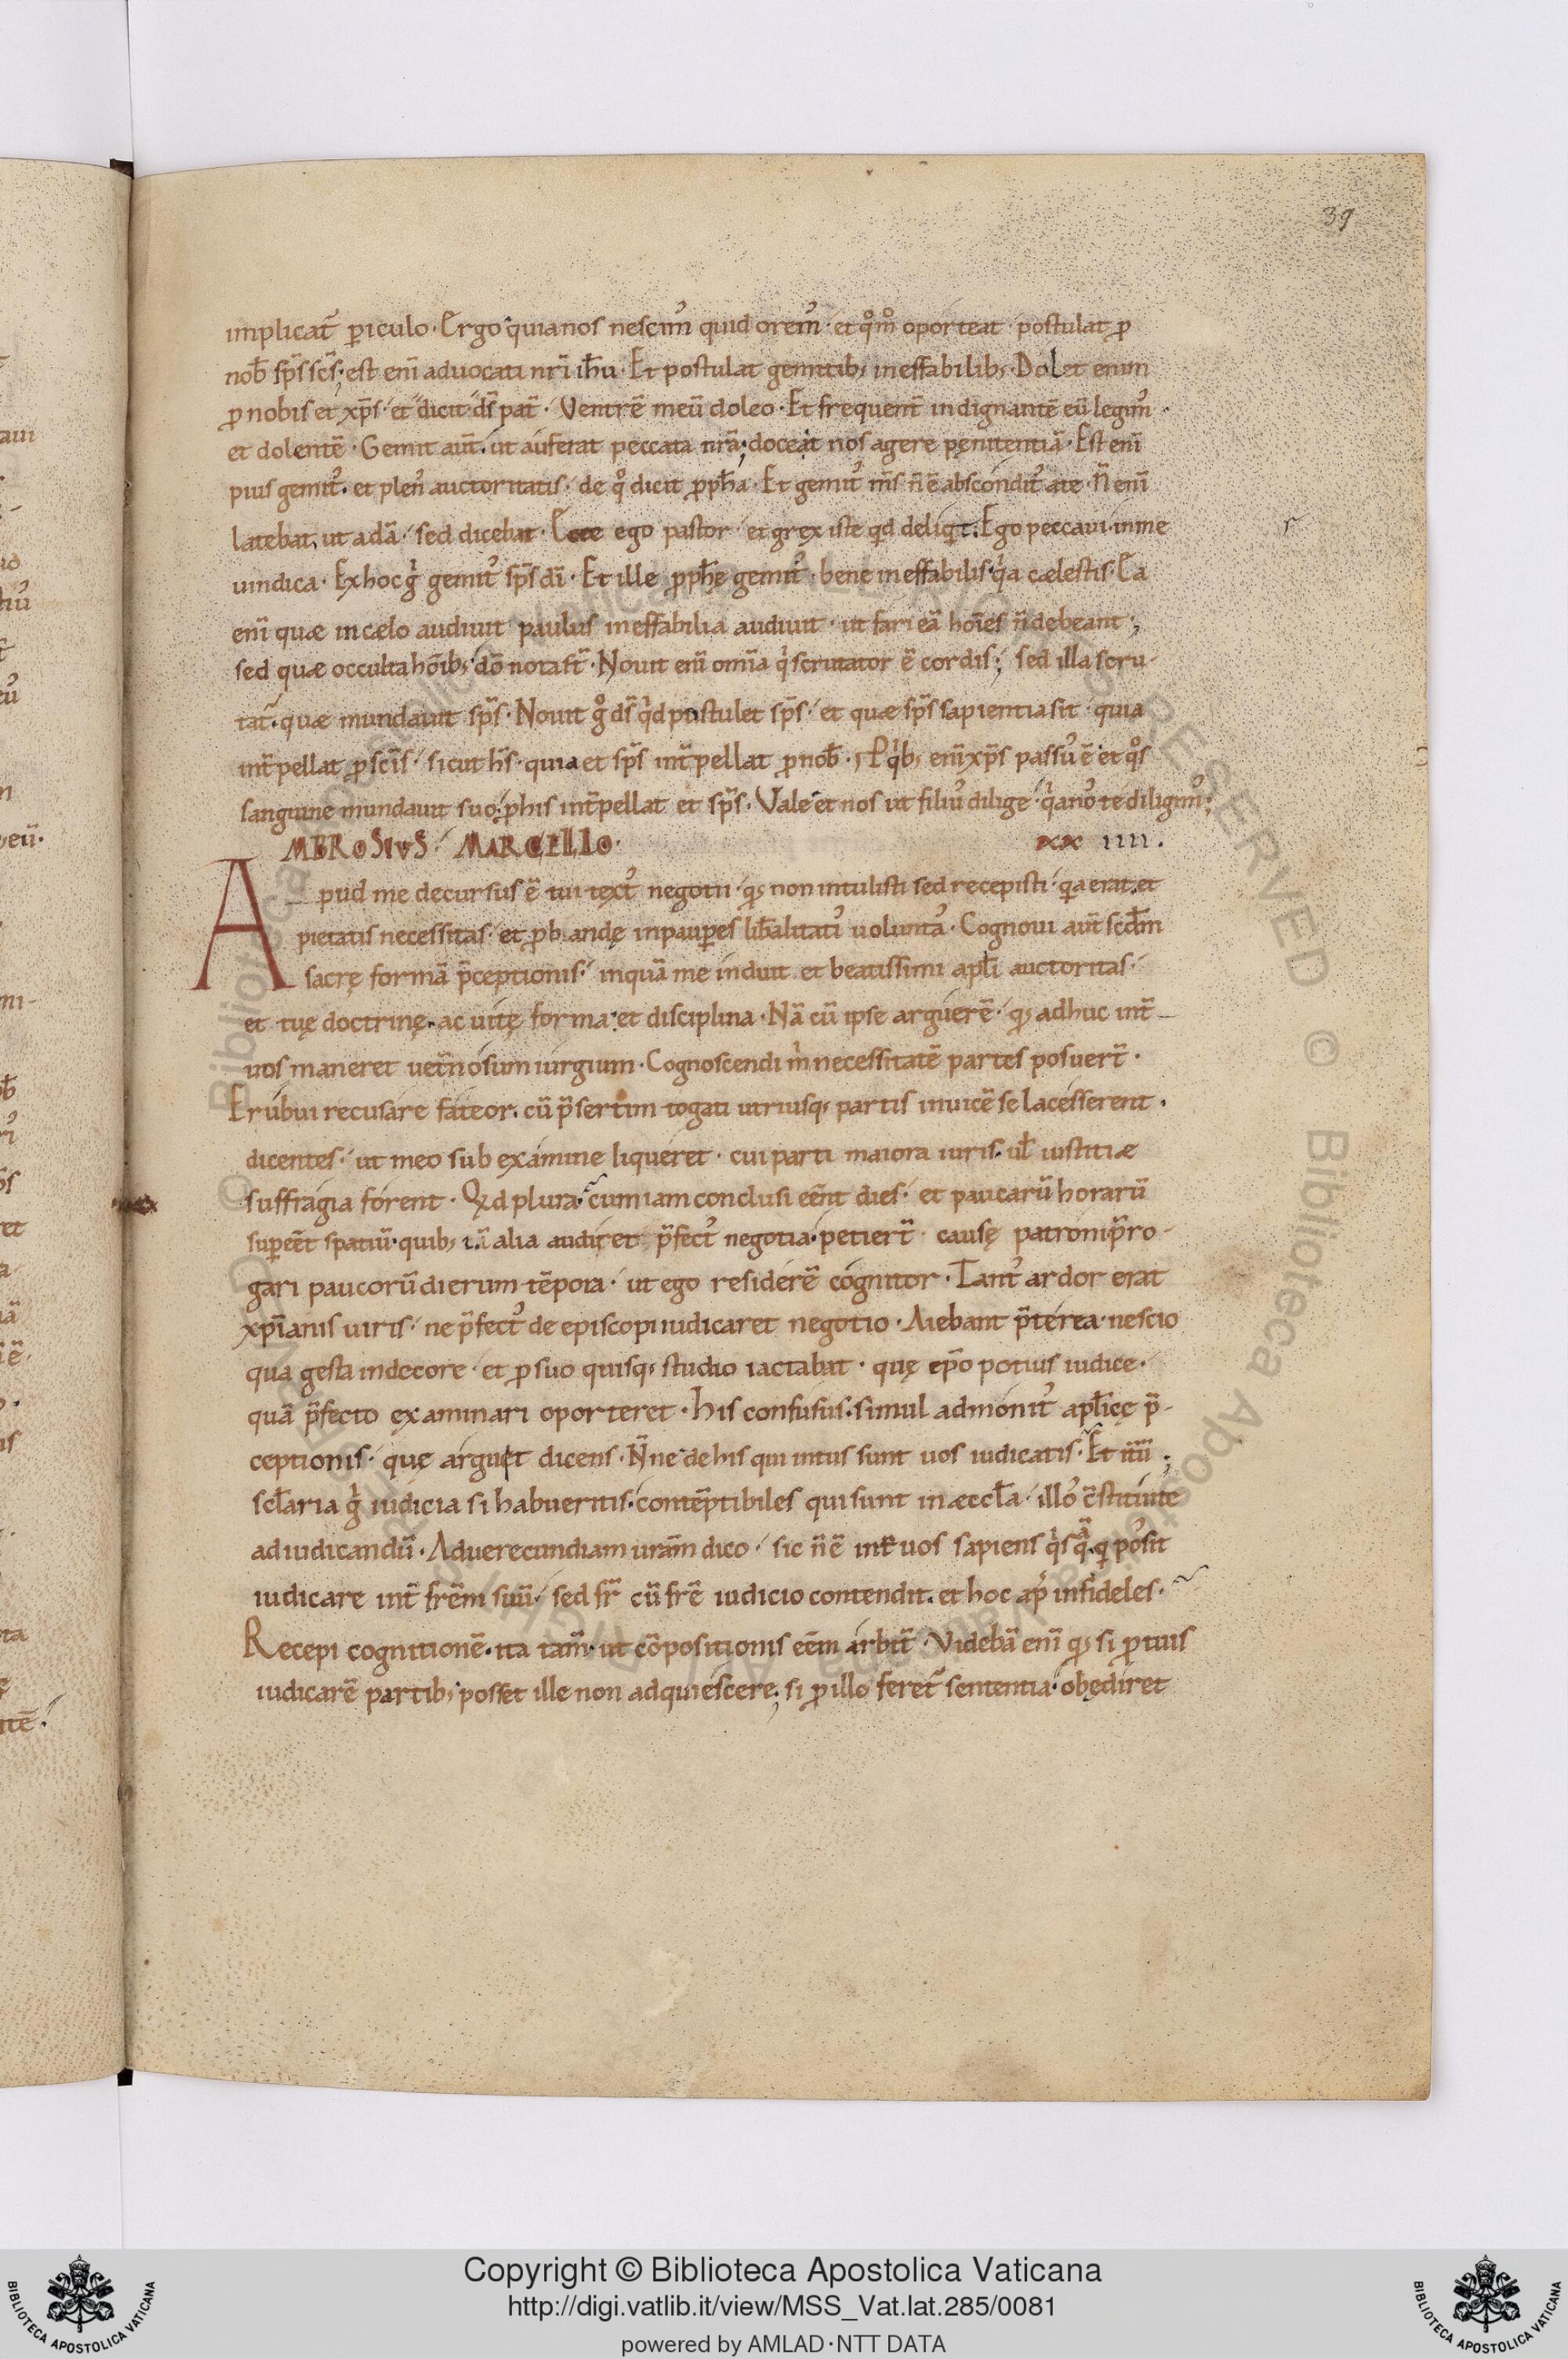 39
implicat̄ ꝑiculo · Ergo quia nos nescim᾽ quid orem᾽ · et qͦmͦ oporteat · postulat ꝓ
nob̄ sp̄s sc̄s; est enī aduocati nr̄i ih̄u · Et postulat gemitib; ineffabilib; · Dolet enim
ꝓ nobis et xp̄s · et dicit ds̄ pat̄ · Ventrē meū doleo · Et frequent̄ indignantē eū legim᾽ ·
et dolentē · Gemit aut̄ · ut auferat peccata nr̄a; doceat nos agere pęnitentiā · Est enī
pius gemit᾽ · et plen᾽ auctoritatis · de qͦ dicit ꝓph̄a · Et gemit᾽ m̄s n̄ ē abscondit᾽ a te · N̄ enī
latebat ut adā · sed dicebat · Ecce ego pastor · et grex iste qd deliqt · Ego peccaui in me
uindica · Ex hoc gͥ gemit᾽ sp̄s dī · Et ille ꝓph̄ę gemit᾽ · bene ineffabilis · qͥa cælestis · Ea
enī quæ in cælo audiuit paulus ineffabilia audiuit · ut fari eā hoīes n̄ debeant ;
sed quæ occulta hōib; dō nota st̄ · Nouit enī omīa qͥ scrutator ē cordis; sed illa scru-
tat᾽ · quæ mundauit sp̄s · Nouit gͦ ds̄ qͥd postulet sp̄s · et quæ sp̄s sapientia sit · quia
int̄pellat ꝓ scīs · sicut hs̄ · quia et sp̄s int̄pellat ꝓ nob̄ · Ꝓ qͥb; enī xp̄s passu᾽ ē et qͦs
sanguine mundauit suo; ꝓ his int̄pellat et sp̄s · Vale et nos ut filiu᾽ dilige · qͥa no᾽ te diligim᾽;
AMBROSIVS · MARCELLO · xx IIII.
Apud me decursus ē tui text᾽ negotii · qͥ; non intulisti sed recepisti · qͥa erat et
pietatis necessitas · et ꝓbandę in pauꝑes lib̄alitati᾽ uolunta᾽ · Cognoui aut̄ scd̄m
sacrę formā p̄ceptionis · in quā me induit et beatissimi apl̄i auctoritas ·
et tuę doctrinę · ac uitę forma · et disciplina · Nā cū ipse arguerē · qͥ; adhuc int̄
uos maneret uet̄nosum iurgium · Cognoscendi mͥ necessitatē partes posuert̄ ·
Erubui recusare fateor · cū p̄sertim togati utriusq; partis inuicē se lacesserent ·
dicentes · ut meo sub examine liqueret · cui parti maiora iuris · ul̄ iustitiæ
suffragia forent · Qͥd plura · cum iam conclusi eēnt dies · et paucarū horarū
suꝑeēt spatiū · quib; iā alia audiret p̄fect᾽ negotia · petiert̄ · causę patroni ꝓro-
gari paucorū dierum tēpora · ut ego residerē cognitor · Tant᾽ ardor erat
xp̄ianis uiris · ne p̄fect᾽ de episcopi iudicaret negotio · Aiebant p̄terea · nescio
qua gesta indecore · et ꝓ suo quisq; studio iactabat · quę ep̄o potius iudice ·
quā p̄fecto ęxaminari oporteret · His confusus · simul admonit᾽ apl̄icę p̄-
ceptionis · quę arguet dicens · N̄ne de his qui intus sunt uos iudicatis · Et itū ;
scl̄aria gͥ iudicia si habueritis · contēptibiles qui sunt in æccl̄a · illo᾽ c̄stituite
ad iudicandū · Ad uerecundiam urām dico · sic n̄ ē int̄ uos sapiens qͥsqͣ · qͥ po᾽sit
iudicare int̄ frēm suū · sed fr̄ cū frē iudicio contendit · et hoc apͥ infideles ·
Recepi cognitionē · ita tam̄ · ut cōpositionis eēm arbit̄ · Videbā enī qͥ; si ꝓ tuis
iudicarē partib; posset ille non adquiescere; si ꝓ illo feret᾽ sententia · obędiret
Copyright © Biblioteca Apostolica Vaticana
http://digi.vatlib.it/view/MSS_Vat.lat.285/0081
powered by AMLAD·NTT DATA